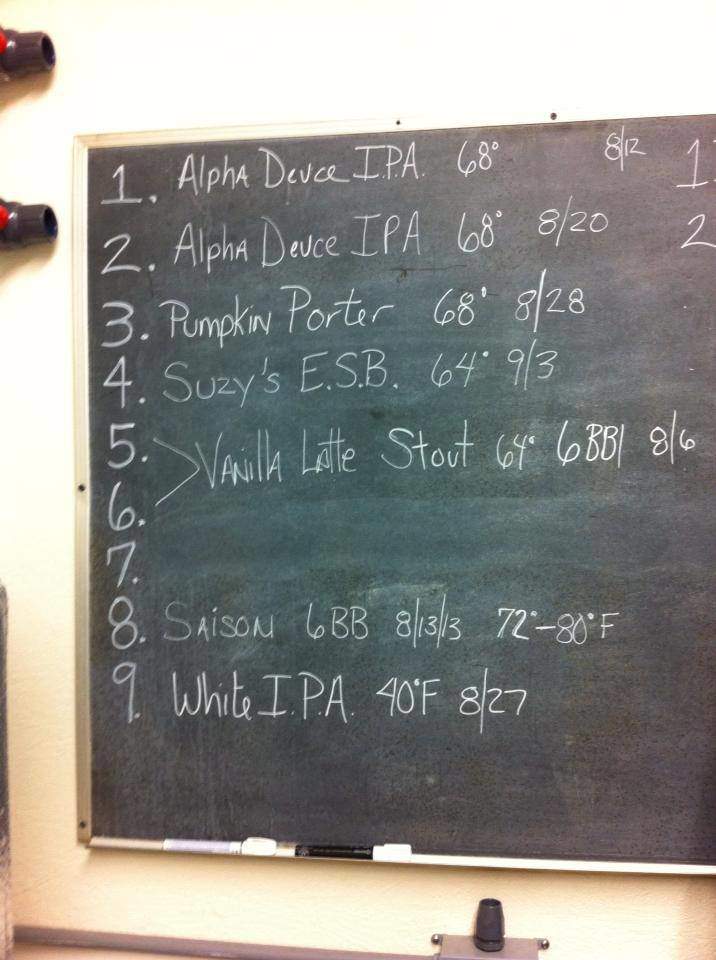 1. Alpha Deuce I.P.A. 68° 8/12 1
2. Alpha Deuce IPA 68° 8/20 2
3. Pumpkin Porter 68° 8/28
4. Suzy's E.S.B. 64° 9/3
5.
> Vanilla Latte Stout 64° 6BBl 8/6
6.
7.
8. Saison 6BB 8/13/13 72°-80°F
9. White I.P.A. 40°F 8/27